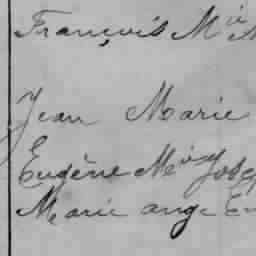 François M ie
Jean Marie
Eugène M ie Jose
Marie ange Em